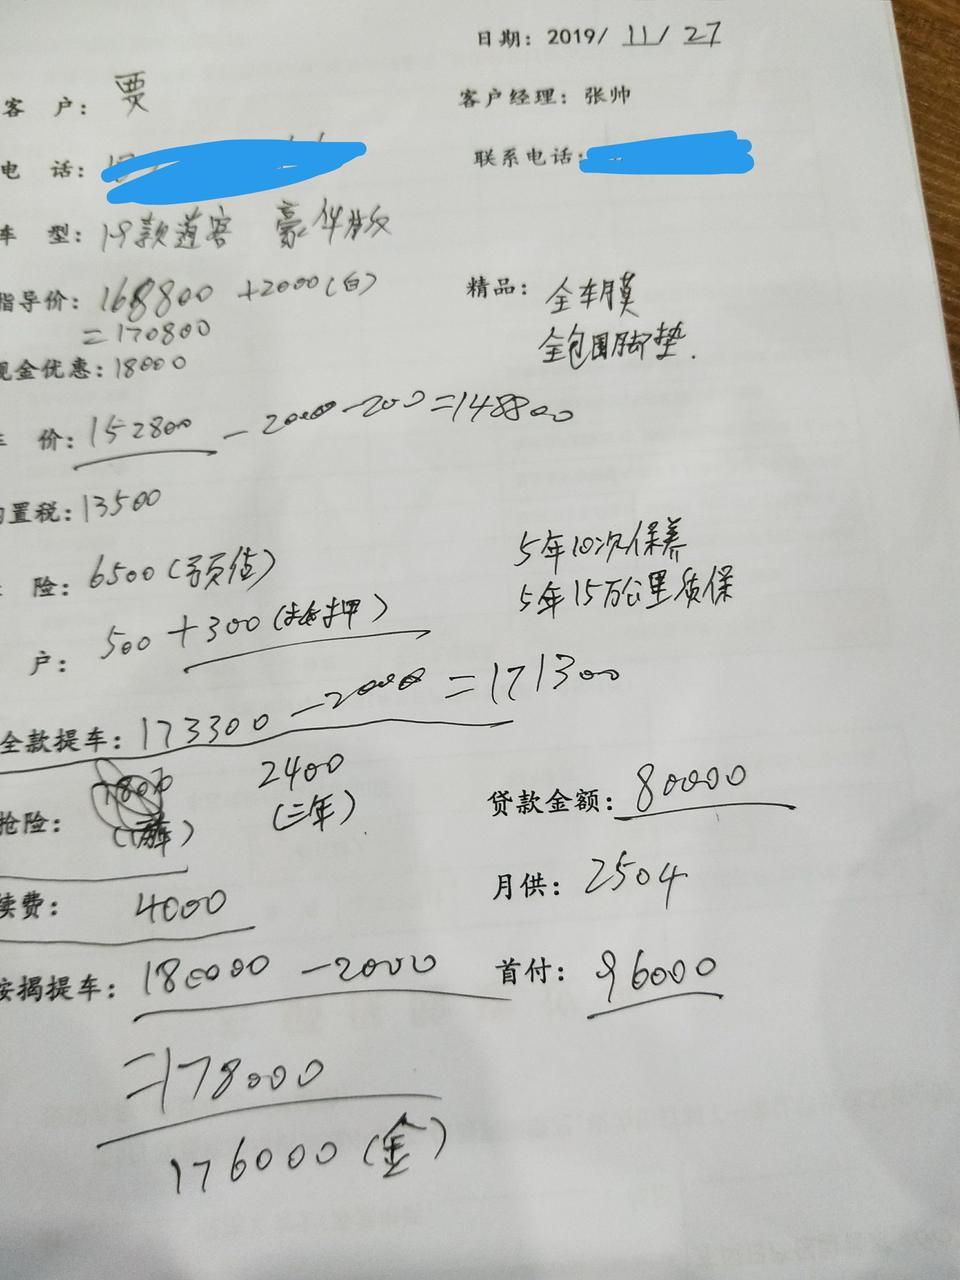 日期: 2019/ 11/ 27
客 户: 贾
客户经理: 张帅
电 话:
联系电话:
车 型: 19款逍客 豪华版
指导价: 168800 +2000(白)
=170800
精品: 全车膜
全包围脚垫.
现金优惠: 18000
车 价: 152800 -2000-2000=148800
购置税: 13500
险: 6500(预估)
5年10次保养
5年15万公里质保
户: 500+300(抵押)
全款提车: 173300 -2000=171300
抢险: 2400
(三年)
贷款金额: 80000
续费: 4000
月供: 2504
按揭提车: 180000 -2000
首付: 96000
=178000
176000(金)